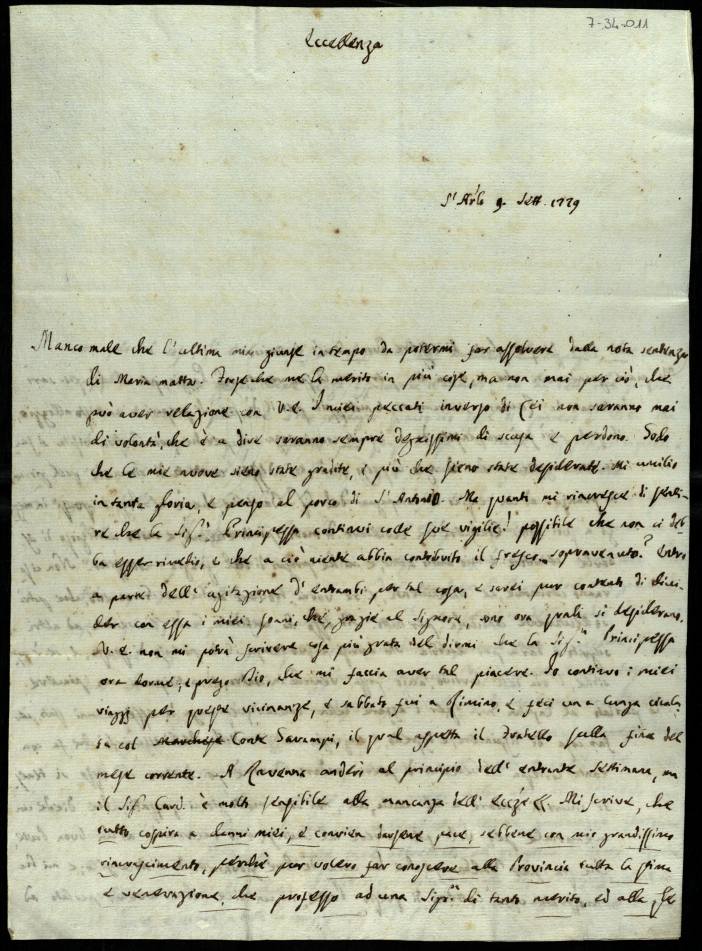 7-34-011
Eccellenza
S.t Arc.lo 9. Sett. 1779
Manco male che l'ultima mia giunse in tempo da potermi far assolvere dalla nota sentenza
di Maria matta. Forse che me la merito in più cose, ma non mai per ciò, che
può aver relazione con V.E. I miei peccati inverso di Lei non saranno mai
di volontà, che è a dire saranno sempre degnissimi di scusa e perdono. Godo
che le mie nuove sieno state gradite, e più che sieno state desiderate. Mi umilio
in tanta gloria, e penso al porco di S.t Antonio. Ma quanto mi rincresce di senti-
re che la Sig.a Principessa continui colle sue vigilie! possibile che non ci deb-
ba esser rimedio, e che a ciò niente abbia contribuito il fresco sopravenuto? Entro
a parte dell'agitazione d'entrambi per tal cosa, e sarei pur contento di divi-
der con essa i miei sonni, che, grazie al Signore, sono ora quali si desiderano.
V.E. non mi potrà scrivere cosa più grata del dirmi che la Sig.a Principessa
ora dorme, e prego Dio, che mi faccia aver tal piacere. Io continuo i miei
viaggi per queste vicinanze, e sabbato fui a Rimino, e feci una lunga cicala-
ta col Marchese Conte Garampi, il qual aspetta il Fratello sulla fine del
mese corrente. A Ravenna anderò al principio dell'entrante settimana, ma
il Sig.r Card. è molto sensibile alla mancanza dell' Mi scrive, che
tutto cospira a danni miei, e convien darsene pace, sebbene con mio grandissimo
rincrescimento, perchè pur volevo far conoscere alla Provincia tutta la stima
e venerazione, che professo ad una Sig.ra di tanto merito, ed alla